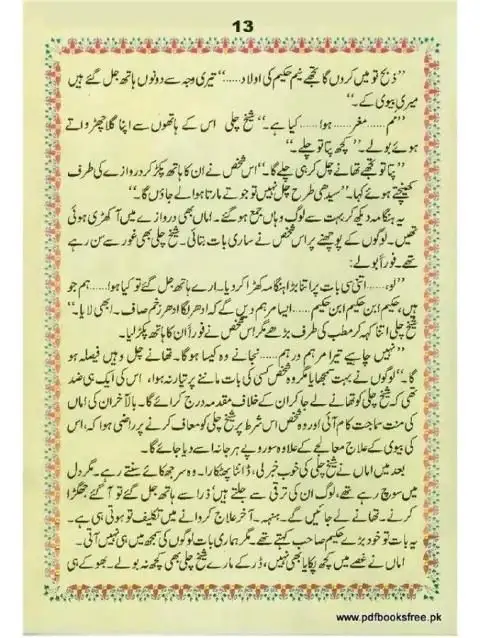 13
’’ذبح تو میں کروں گا تجھے نیم حکیم کی اولاد......‘‘ تیری وجہ سے دونوں ہاتھ جل گئے ہیں
میری بیوی کے۔‘‘
’’مم...... مغر...... ہوا...... کیا ہے۔‘‘ شیخ چلی اس کے ہاتھوں سے اپنا گلا چھڑواتے
ہوئے بولے۔ ’’کچھ پتا تو چلے۔‘‘
’’پتا تو تجھے تھانے چل کر ہی چلے گا۔‘‘ اس شخص نے ان کا ہاتھ پکڑ کر دروازے کی طرف
کھینچتے ہوئے کہا۔ ’’سیدھی طرح چل نہیں تو جوتے مارتا ہوا لے جاؤں گا۔‘‘
یہ ہنگامہ دیکھ کر بہت سے لوگ وہاں جمع ہو گئے۔ اماں بھی دروازے میں آ کھڑی ہوئی
تھیں۔ لوگوں کے پوچھنے پر اس شخص نے ساری بات بتائی۔ شیخ چلی بھی غور سے سن رہے
تھے۔ فوراً بولے:
’’لو،...... اتنی سی بات پر اتنا بڑا ہنگامہ کھڑا کر دیا۔ ارے ہاتھ جل گئے تو کیا ہوا...... ہم جو
ہیں، حکیم ابن حکیم ابن حکیم...... ایسا مرہم دیں گے کہ ادھر لگا ادھر زخم صاف۔ ابھی لایا۔‘‘
شیخ چلی اتنا کہہ کر مطب کی طرف بڑھے مگر اس شخص نے فوراً ان کا ہاتھ پکڑ لیا۔
’’نہیں چاہیے تیرا مرہم ورہم...... نجانے وہ کیسا ہو گا۔ تھانے چل وہیں فیصلہ ہو
گا۔‘‘ لوگوں نے بہت سمجھایا مگر وہ شخص کسی کی بات ماننے پر تیار نہ ہوا، اس کی ایک ہی ضد
تھی کہ شیخ چلی کو تھانے لے جا کر ان کے خلاف مقدمہ درج کرائے گا۔ بالآخر ان کی اماں
کی منت سماجت کام آئی اور وہ شخص اس شرط پر شیخ چلی کو معاف کرنے پر راضی ہوا کہ، اس
کی بیوی کے علاج معالجے کے علاوہ سو روپے ہرجانہ اسے دیا جائے گا۔
بعد میں اماں نے شیخ چلی کی خوب خبر لی، ڈانٹا پھٹکارا۔ وہ سر جھکائے سنتے رہے۔ مگر دل
میں سوچ رہے تھے، لوگ ان کی ترقی سے جلتے ہیں‘ ذرا سے ہاتھ جل گئے تو آ گئے جھگڑا
کرنے۔ تھانے لے جائیں گے۔ ہنہہ۔ آخر علاج کروانے میں تکلیف تو ہوتی ہی ہے۔
یہ بات تو خود بڑے حکیم صاحب کہتے تھے۔ مگر ہماری بات لوگوں کی سمجھ میں ہی نہیں آتی۔
اماں نے غصے میں کچھ پکایا بھی نہیں، ڈر کے مارے شیخ چلی بھی کچھ نہ بولے۔ بھوکے ہی
www.pdfbooksfree.pk